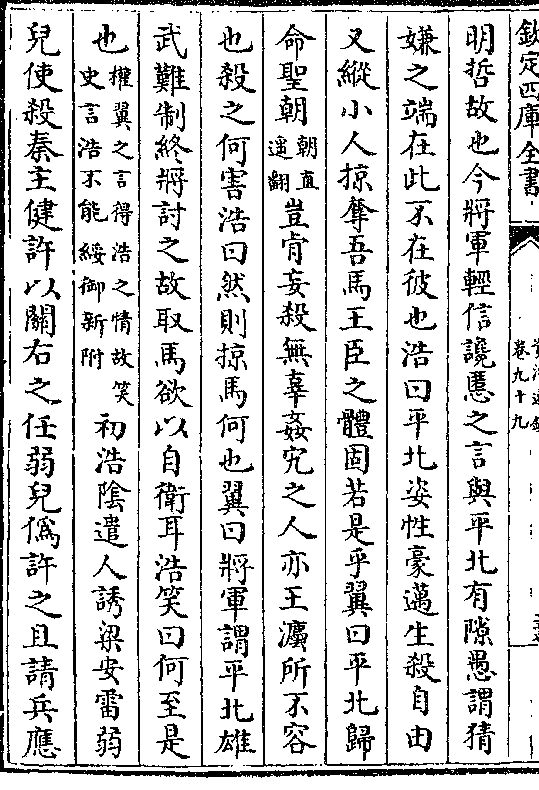 欽定四庫全書
卷九十九
明哲故也今將軍輕信讒慝之言與平北有隙愚謂猜
嫌之端在此不在彼也浩曰平北姿性豪邁生殺自由
又縱小人掠奪吾馬王臣之體固若是乎翼曰平北歸
命聖朝朝直遥翻豈肯妄殺無辜姦宄之人亦王灋所不容
也殺之何害浩曰然則掠馬何也翼曰將軍謂平北雄
武難制終將討之故取馬欲以自衛耳浩笑曰何至是
也權翼之言得浩之情故笑史言浩不能綏御新附初浩陰遣人誘梁安雷弱
兒使殺秦主健許以關右之任弱兒僞許之且請兵應